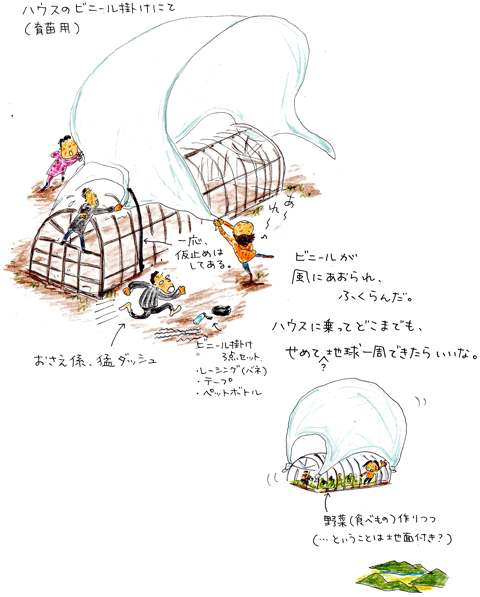 ハウスのビニール掛けにて
(育苗用)
あ〜れ〜〜
一応、
仮止めは
してある。
ビニールが
風にあおられ、
ふくらんだ。
ハウスに乗ってどこまでも、
せめて地球一周できたらいいな。
?
おさえ係、猛ダッシュ
ビニール掛け
3点セット
・レーシング(バネ)
・テープ
・ペットボトル
野菜(食べもの)作りつつ
(…ということは地面付き?)